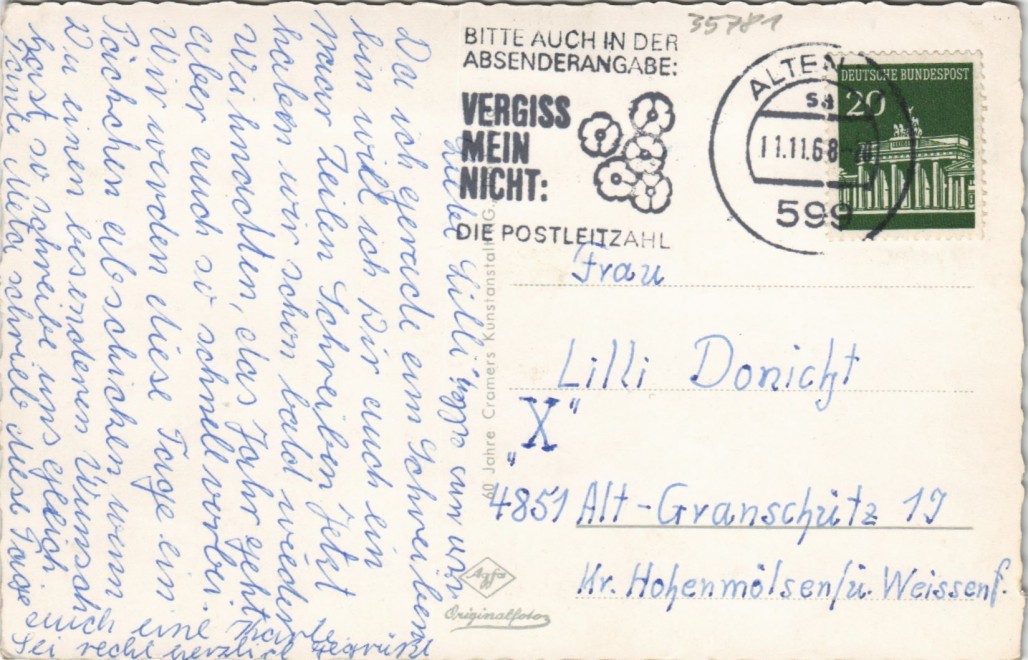 35781
BITTE AUCH IN DER
ABSENDERANGABE:
VERGISS
MEIN
NICHT:
DIE POSTLEITZAHL
ALTEN
11.11.68-20
599
DEUTSCHE BUNDESPOST
20
Frau
Lilli Donicht
"X"
4851 Alt-Granschütz 19
Kr. Hohenmölsen/ü. Weissenf.
60 Jahre Cramers Kunstanstalt
Agfa
Originalfoto
Lilli
Da ich gerade am Schreiben
bin will ich Dir auch ein
paar Zeilen Schreiben. Jetzt
haben wir schon bald wieder
Weihnachten, das Jahr geht
aber auch so schnell vorbei.
Wir werden diese Tage ein
Päckchen abschicken wenn
Du einen besonderen Wunsch
hast so schreibe uns gleich.
Tante Meta schrieb diese Tage
auch eine Karte
Sei recht herzlich gegrüßt